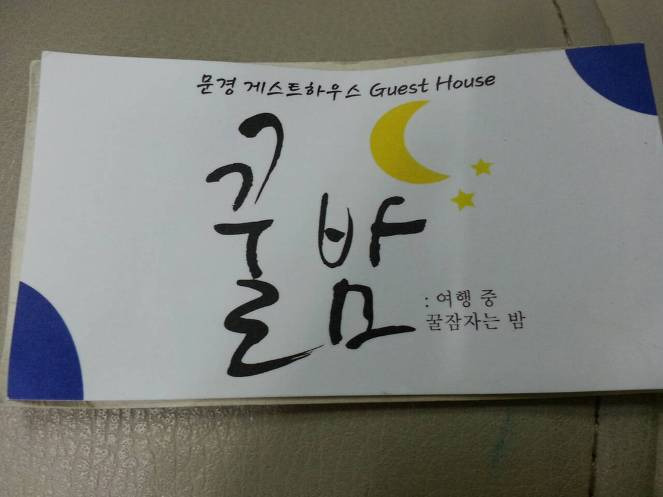 문경 게스트하우스 Guest House
꿀밤
: 여행 중
꿀잠자는 밤